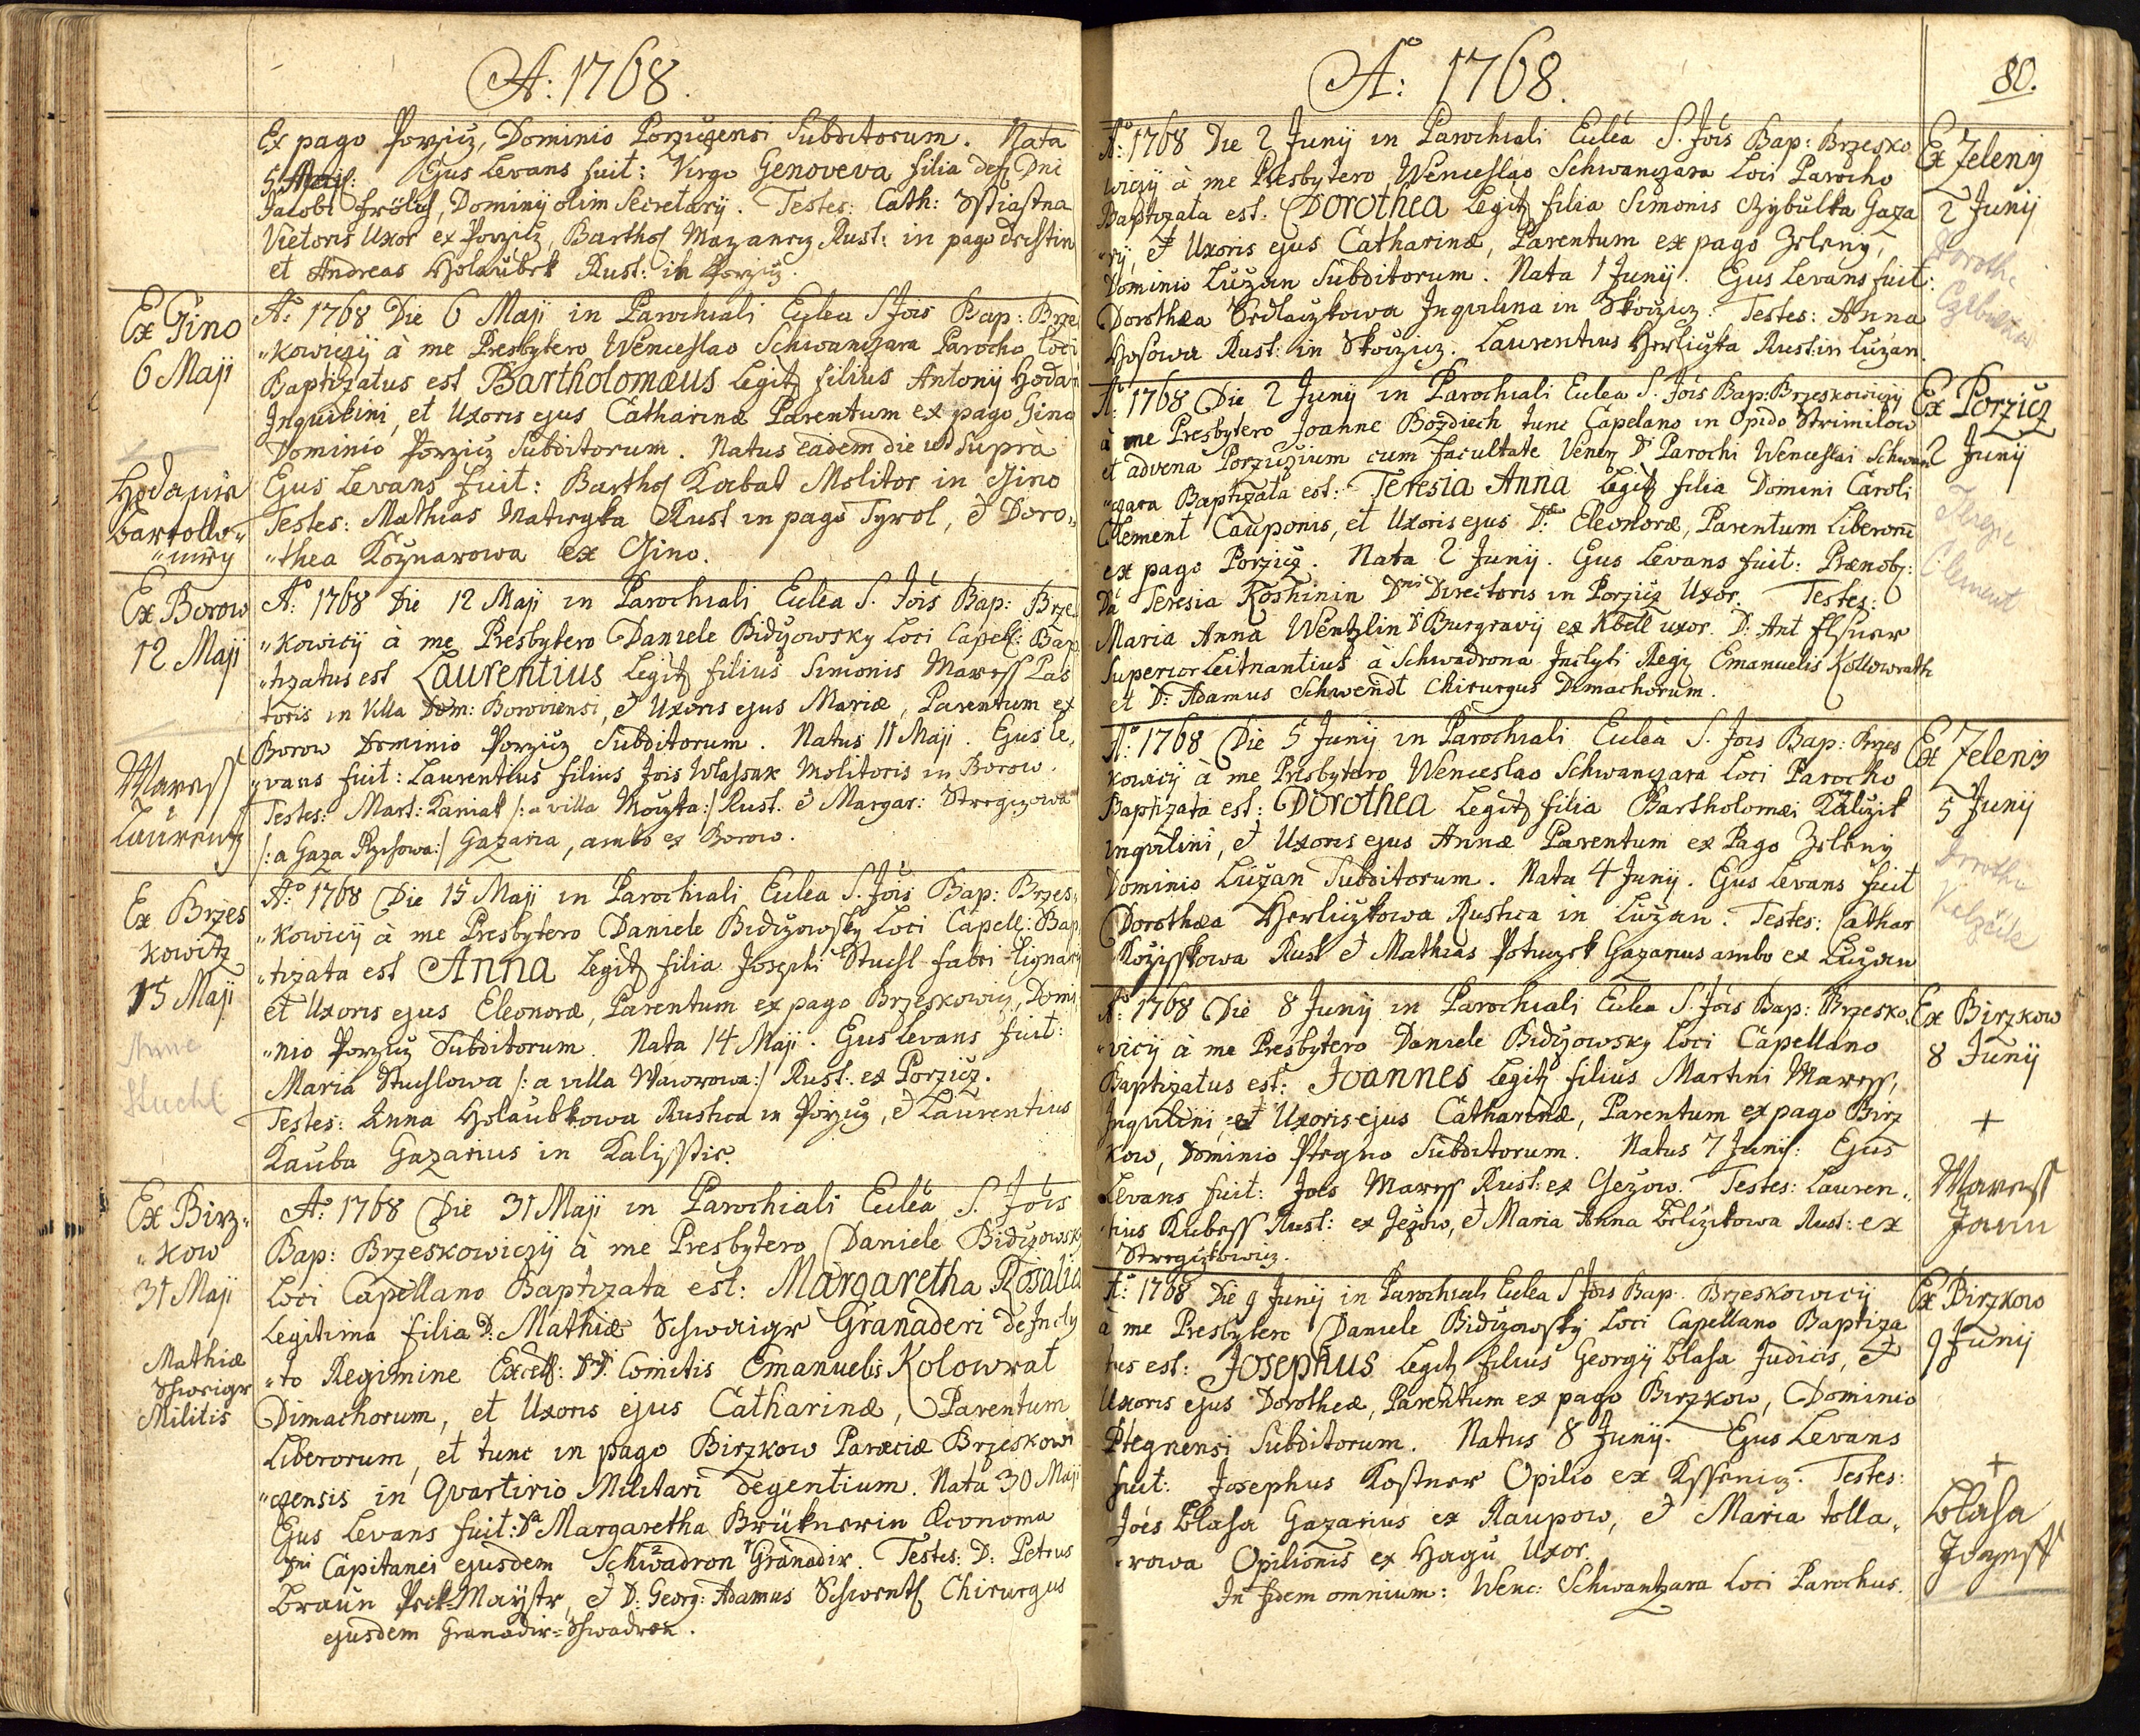 A: 1768.
Ex pago Porzicz, Dominio Porziczensi Subditorum. Nata
5 Maji: Ejus Levans fuit: Virgo Genoveva filia def Dni
Jacobi Frölich, Dominij olim Secretarij. Testes: Cath: Sstiastna
Vietoris Uxor ex Porzicz, Barthol Mazancz Rust: in pago
et Andreas Holaubek Rust: in Porzicz.
Ex Gino
6 Maji
Hodanin
Bartollo„
„mity
A: 1768 Die 6 Maji in Parochiali Eclea S Jois Bap: Brzes
„kowiczij à me Presbytero Wenceslao Schwanczara Parocho Loci
Baptizatus est Bartholomæus Legit filius Antonij Hodan
Inquilini, et Uxoris ejus Catharinæ Parentum ex pago Gino
Dominio Porzicz Subditorum. Natus eadem die ut Supra
Ejus Levans fuit: Barthol Korbat Molitor in Gino
Testes: Mathias Matiegka Rust in pago Tyrol, et Doro„
„thea Koznarowa ex Gino.
Ex Borow
12 Maji
Maress
Laurentz
A: 1768 Die 12 Maji in Parochiali Eclea S. Jois Bap: Brzes
„kowicij à me Presbytero Daniele Bidizowsky Loci Capell: Bap
„tizatus est Laurentius Legit filius Simonis Maress Pas
toris in Villa Dom: Boroviensi, et Uxoris ejus Mariæ, Parentum ex
Borow Dominio Porzicz Subditorum. Natus 11 Maji. Ejus le„
„vans fuit: Laurentius filius Jois Wlassak Molitoris in Borow.
Testes: Mart: Kaniak /: a villa Mouzka:/ Rust. et Margar: Stregczowa
/: a Gaza Rzihowa:/ Gazaria, ambo ex Borow.
Ex Brzes
kowitz
15 Maji
Anne
Stuchl
A: 1768 Die 15 Maji in Parochiali Eclea S. Jois Bap: Brzes„
„kowicij à me Presbytero Daniele Bidizowsky Loci Capell: Bap
„tizata est Anna Legit filia Josephi Stuchl fabri lignarij
et Uxoris ejus Eleonoræ, Parentum ex pago Brzeskowicz, Domi
„nio Porzicz Subditorum. Nata 14 Maji. Ejus Levans fuit:
Maria Stuchlowa /: a villa Wawrowa:/ Rust: ex Porzicz.
Testes: Anna Holaubkowa Rustica in Porzicz, et Laurentius
Kauba Gazarius in Kalisstie.
Ex Birz„
„kow
31 Maji
Mathiæ
Schwaigr
Militis
A: 1768 Die 31 Maji in Parochiali Eclea S. Jois
Bap: Brzeskowiczij à me Presbytero Daniele Bidizowsky
Loci Capellano Baptizata est: Margaretha Rosalia
Legitima filia D: Mathiæ Schwaigr Granaderi de Incly
„to Regimine Excell: DD. Comitis Emanuelis Kolowrat
Dimachorum, et Uxoris ejus Catharinæ, Parentum
Liberorum, et tunc in pago Birzkow Paræciæ Brzeskowi
„czensis in Quartirio Militari degentium. Nata 30 Maji
Ejus Levans fuit: Da Margaretha Brüknerin Œconoma
Dni Capitanei ejusdem Schwadron Granadir. Testes: D: Petrus
Braun Pek-Maystr, et D: Georg: Adamus Schwentl Chirurgus
ejusdem Granadir=Schwadron.
A: 1768.
80.
A: 1768 Die 2 Junij in Parochiali Eclea S. Jois Bap: Brzesko
wiczij à me Presbytero Wenceslao Schwanczara Loci Parocho
Baptizata est: Dorothea Legit filia Simonis Czybulka Gaza
„rij, et Uxoris ejus Catharinæ, Parentum ex pago Zeleny,
Dominio Luzan Subditorum. Nata 1 Junij. Ejus Levans fuit:
Dorothea Sedlaczkowa Inquilina in Skoczicz. Testes: Anna
Hosowa Rust: in Skoczicz. Laurentius Herliczka Rust: in Luzan.
Ex Zeleny
2 Junij
Dorothe
Czibulka
A: 1768 Die 2 Junij in Parochiali Eclea S. Jois Bap: Brzeskowiczij
à me Presbytero Joanne Bozdiech tunc Capelano in Opido Strimilow
et advena Porziczium cum facultate Venerz D Parochi Wenceslai Schwan
„czara Baptizata est: Teresia Anna Legit filia Domini Caroli
Clement Cauponis, et Uxoris ejus D: Eleonoræ, Parentum Liberorum
ex pago Porzicz. Nata 2 Junij. Ejus Levans fuit: Prænob:
Da Teresia Koshinin Dni Directoris in Porzicz Uxor. Testes:
Maria Anna Wentzlin D Burgravij ex Kbell uxor. D: Ant Elsner
Superior Leitnantius à Schwadrona Inclyti Regij Emanuelis Kollowrath
et D: Adamus Schwendt Chirurgus Dimachorum.
Ex Porzicz
2 Junij
Terezie
Clement
A: 1768 Die 5 Junij in Parochiali Eclea S. Jois Bap: Brzes
kowicij à me Presbytero Wenceslao Schwanczara Loci Parocho
Baptizata est: Dorothea Legit filia Bartholomæi Kalczik
Inquilini, et Uxoris ejus Annæ Parentum ex Pago Zeleny
Dominio Luzan Subditorum. Nata 4 Junij. Ejus Levans fuit
Dorothæa Herliczkowa Rustica in Luzan. Testes: Cathar
Kozisskowa Rust et Mathias Potuczek Gazarius ambo ex Luzan
Ex Zeleny
5 Junij
Dorothe
Kalzčik
A: 1768 Die 8 Junij in Parochiali Eclea S. Jois Bap: Brzesko
„vicij à me Presbytero Daniele Bidizowsky Loci Capellano
Baptizatus est: Joannes Legit filius Martini Maress,
Inquilini, et Uxoris ejus Catharinæ, Parentum ex pago Birz
kow, Dominio Ptegno Subditorum. Natus 7 Junij: Ejus
Levans fuit: Joes Maress Rust: ex Gezow. Testes: Lauren„
„tius Kubess Rust: ex Jezow, et Maria Anna Belczikowa Rust: ex
Stregczkowicz.
Ex Birzkow
8 Junij
+
Maress
Jann
A: 1768 Die 9 Junij in Parochiali Eclea S Jois Bap: Brzeskowicij
à me Presbytero Daniele Bidizowsky Loci Capellano Baptiza
tus est: Josephus Legit filius Georgij Blaha Judicis, et
Uxoris ejus Dorotheæ, Parentum ex pago Birzkow, Dominio
Ptegnensi Subditorum. Natus 8 Junij. Ejus Levans
fuit: Josephus Kostner Opilio ex Kssenicz. Testes:
Joes Blaha Gazarius ex Raupow, et Maria Tolla„
„rowa Opilionis ex Hagu Uxor.
In fidem omnium: Wenc: Schwantzara Loci Parochus.
Ex Birzkow
9 Junij
+
Blaha
Jozeff